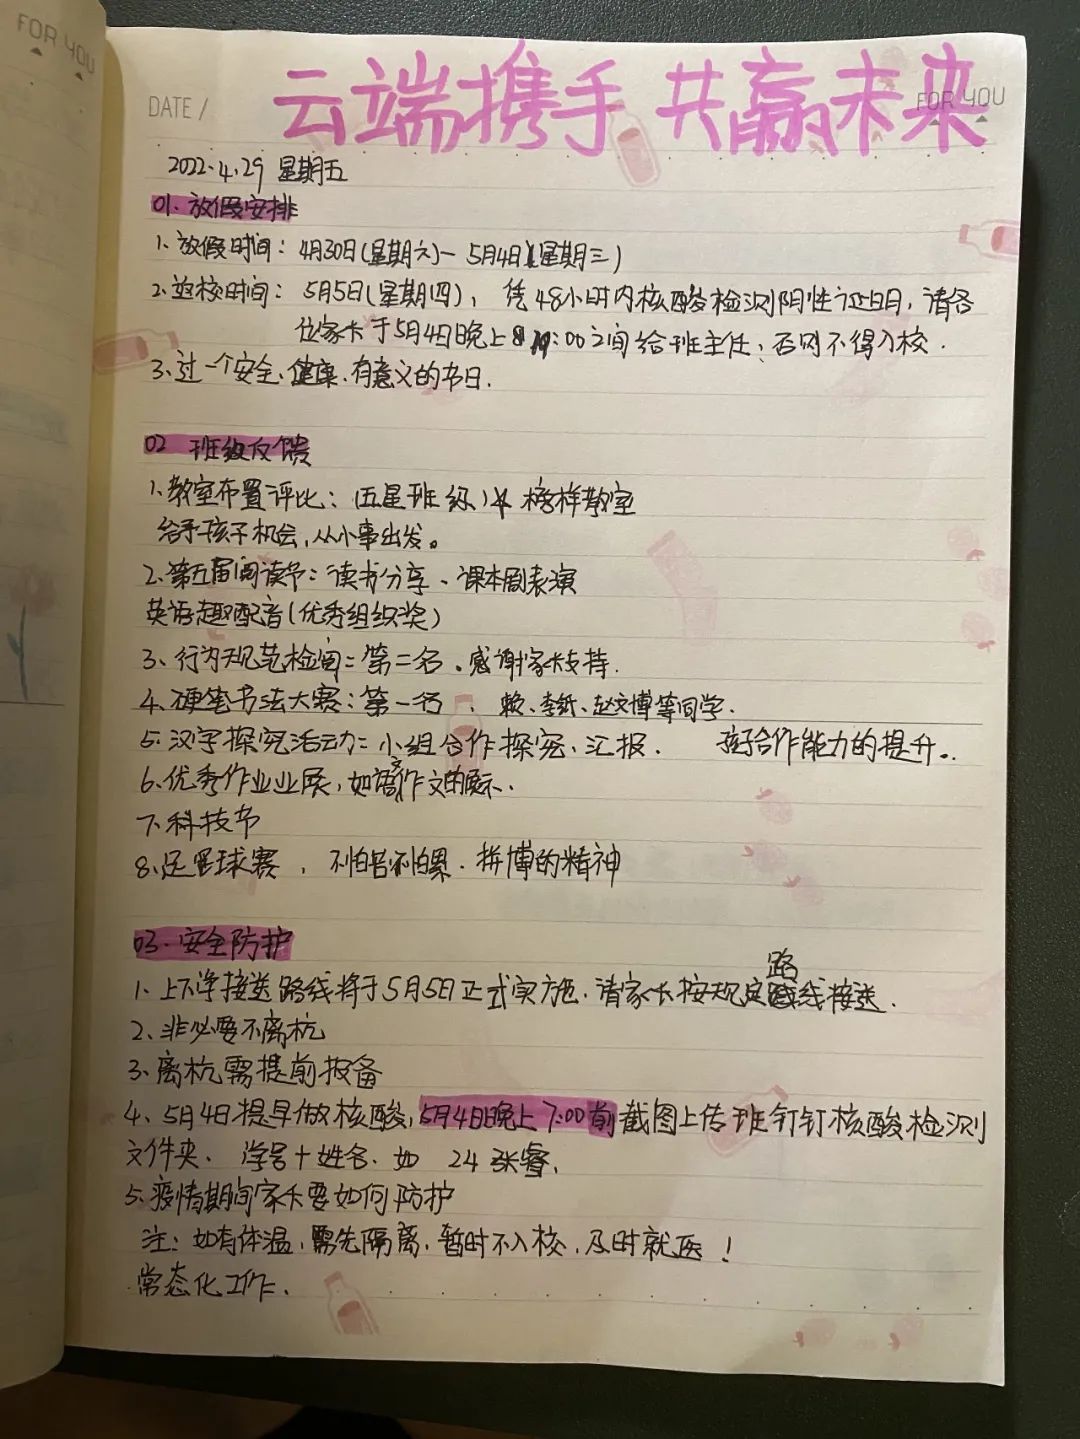 FOR YOU
云端携手 共赢未来
DATE /
FOR YOU
2022.4.29 星期五
01. 放假安排
1、放假时间：4月30日(星期六)- 5月4日(星期三)
2、返校时间：5月5日(星期四)，凭48小时内核酸检测阴性证明，请各
位家长于5月4日晚上 :00之间给班主任，否则不得入校.
3、过一个安全、健康、有意义的节日.
02 班级反馈
1、教室布置评比：(五星班级) 榜样教室
给予孩子机会，从小事出发。
2、第五届阅读节：读书分享、课本剧表演
英语趣配音(优秀组织奖)
3、行为规范检阅：第二名。感谢家长支持.
4、硬笔书法大赛：第一名 、赖、李 、赵文博等同学.
5、汉字探究活动：小组合作探究、汇报. 孩子合作能力的提升。
6、优秀作业业展，如语文作文的展示.
7、科技节
8、足球赛，不怕苦不怕累.拼搏的精神
03. 安全防护
1、上下学接送路线将于5月5日正式实施.请家长按规定路线接送.
2、非必要不离杭
3、离杭需提前报备
4、5月4日提早做核酸，5月4日晚上7:00前截图上传班钉钉核酸检测
文件夹. 学号+姓名.如 24 张睿.
5、疫情期间家长要如何防护
注：如有体温，需先隔离，暂时不入校，及时就医！
常态化工作.